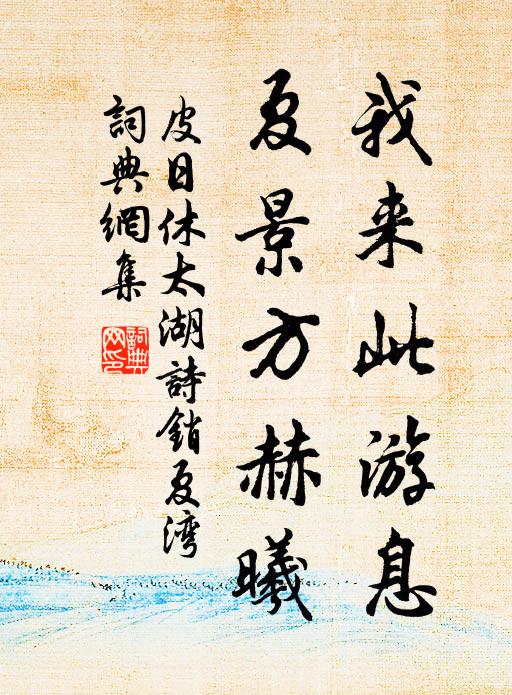 我来此游息
夏景方赫曦
皮日休太湖詩銷夏湾
詞典網集
詞典网印